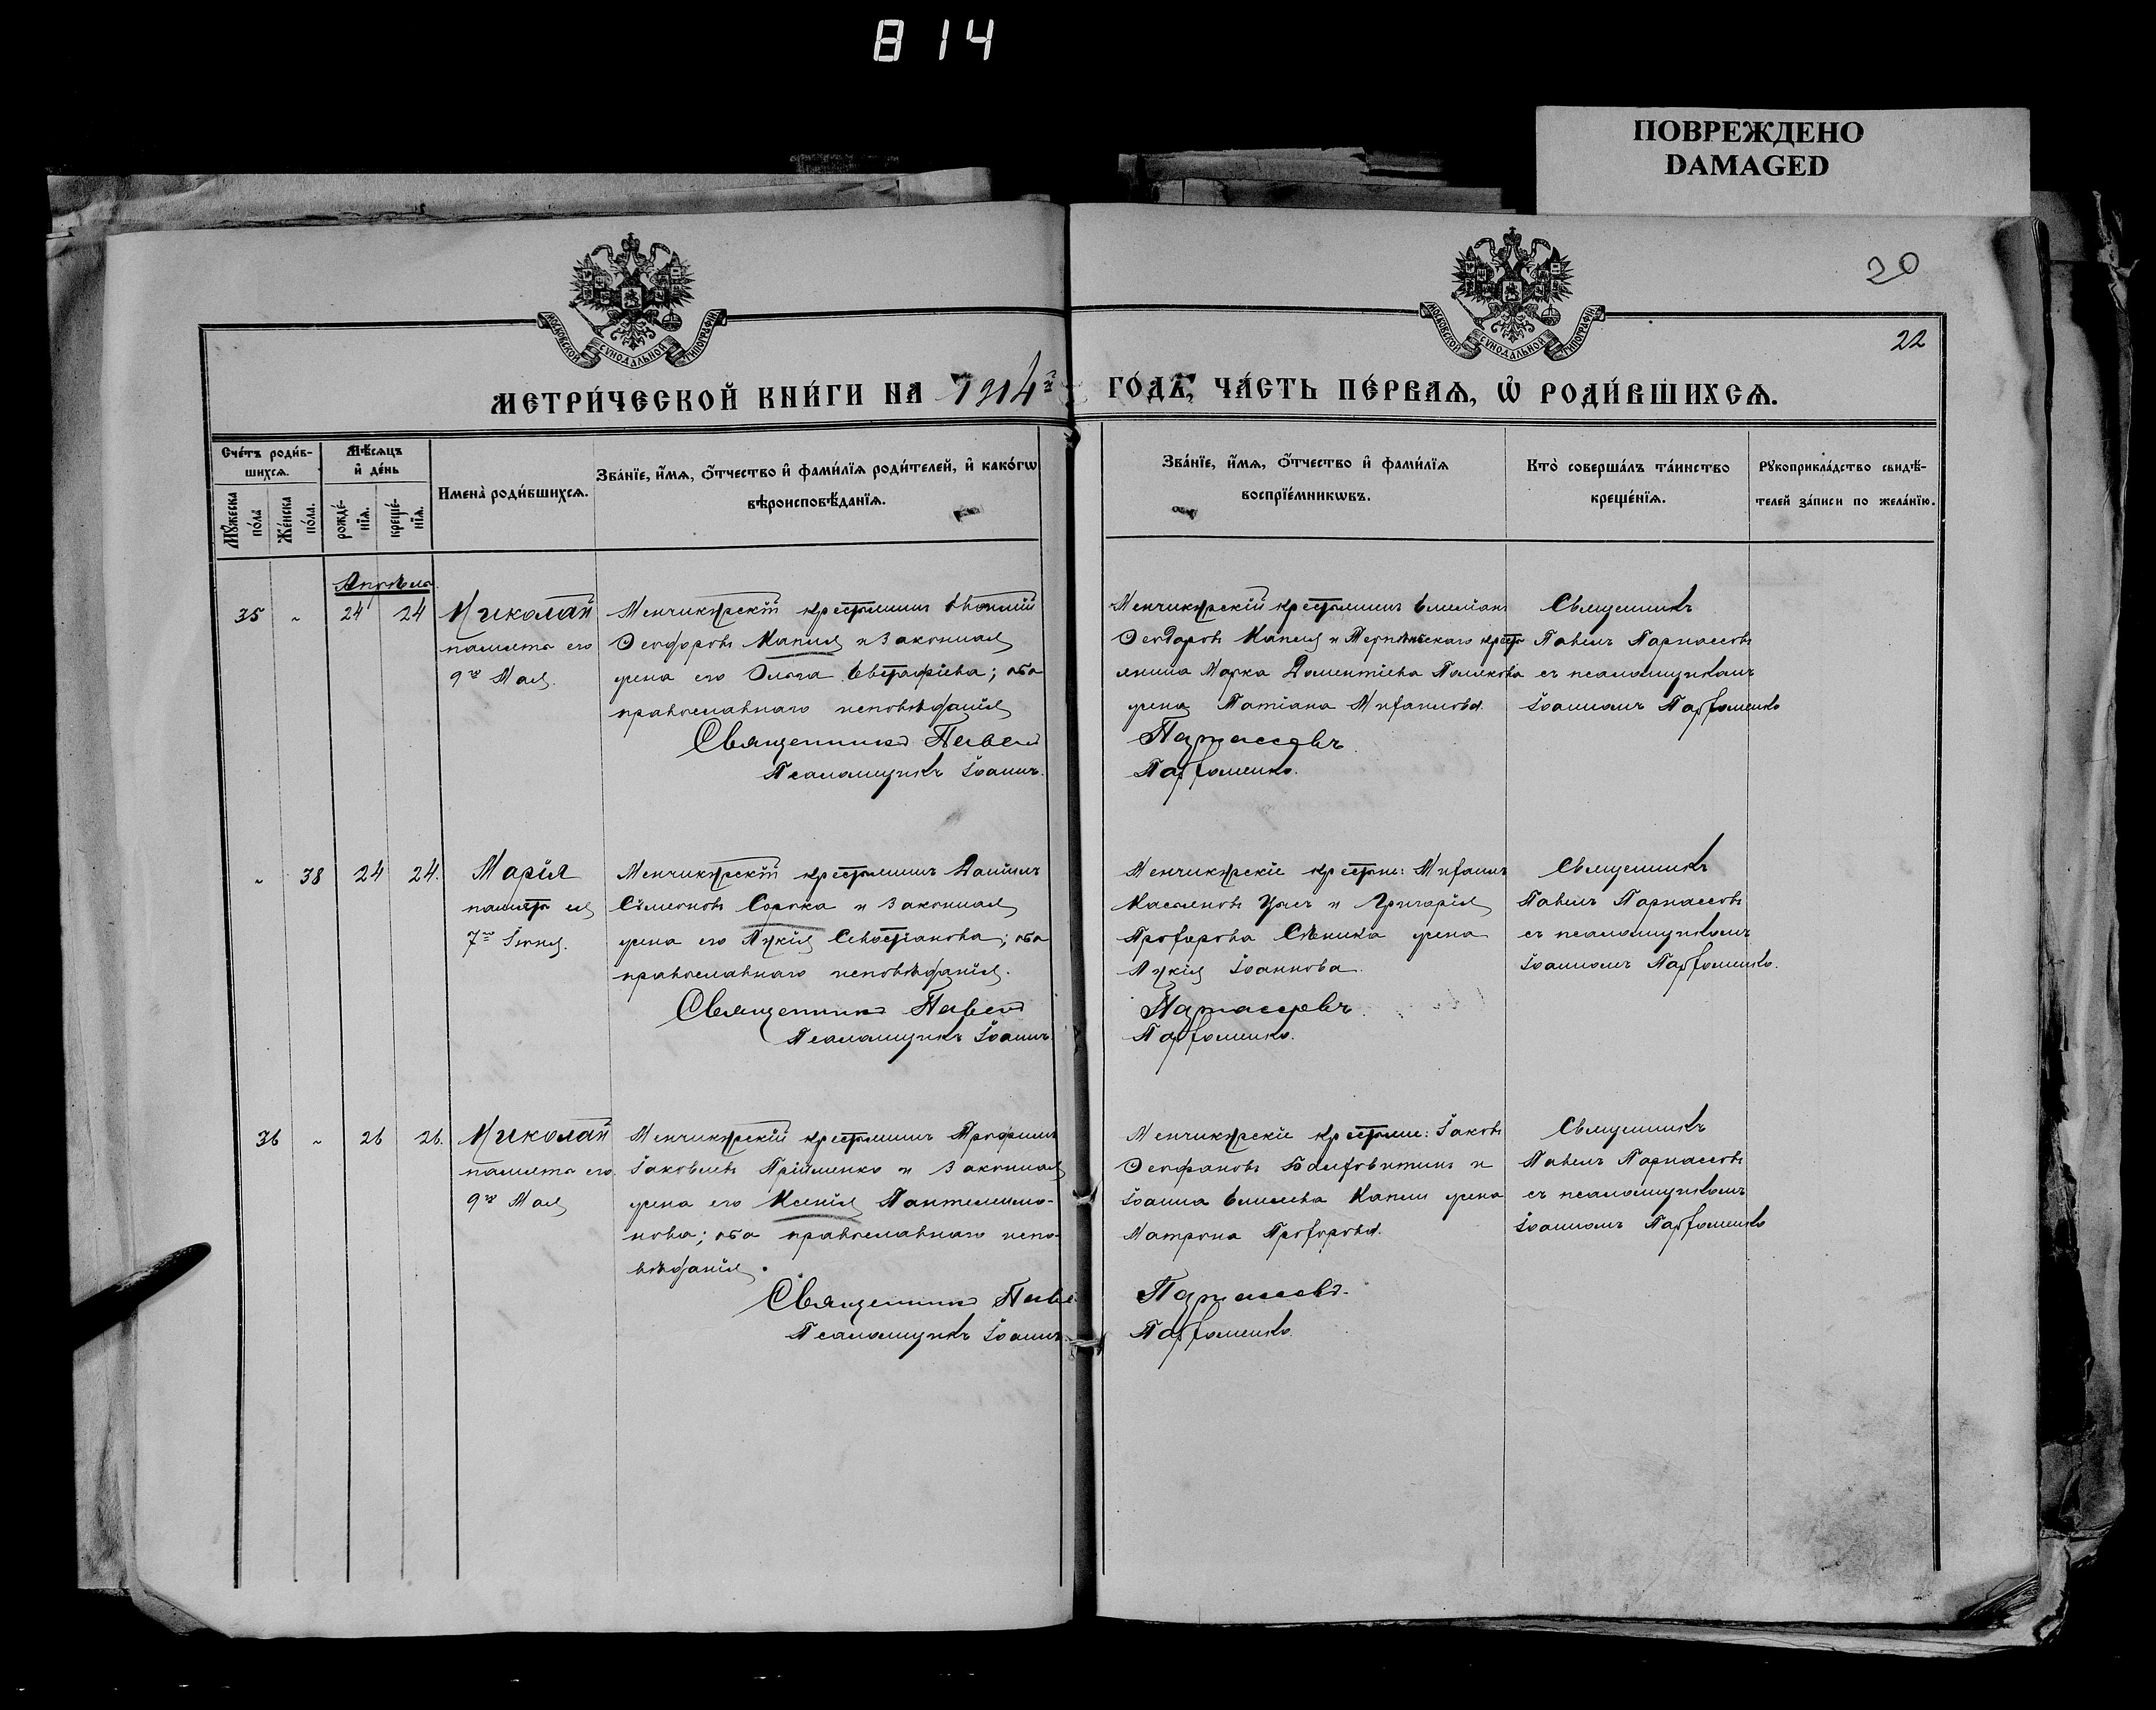 814
ПОВРЕЖДЕНО
DAMAGED
20
22
МОСКОВСКОЙ СѴНОДАЛЬНОЙ ТИПОГРАФІИ
МОСКОВСКОЙ СѴНОДАЛЬНОЙ ТИПОГРАФІИ
МЕТРИ́ЧЕСКОЙ КНИ́ГИ НА 1914й ГО́ДЪ, ЧА́СТЬ ПЕ́РВАѦ, Ѡ҆ РОДИ́ВШИХСѦ.
Сче́тъ роди́в-
шихсѧ.
Мꙋ́жеска по́ла
Же́нска по́ла.
Мѣ́сѧцъ
и҆ де́нь
рожде́-
нїѧ.
креще́-
нїѧ.
Имена̀ роди́вшихсѧ.
Зва́нїе, и҆́мѧ, ѻ҆́тчество и҆ фами́лїѧ роди́телей, и҆ како́гѡ
вѣроисповѣ́данїѧ.
Зва́нїе, и҆́мѧ, ѻ҆́тчество и҆ фами́лїѧ
воспрїе́мникѡвъ.
Кто̀ соверша́лъ та́инство
креще́нїѧ.
Рꙋкоприкла́дство свидѣ́-
телей за́писи по жела́нїю.
Апрѣль
35 „ 24 24
Николай
память его
9го Мая.
Менчикурскій крестьянинъ
Ѳеодоровъ Капля и законная
жена его Ольга Евстафіева; оба
православнаго исповѣданія
Священникъ Павелъ
Псаломщикъ Іоаннъ
Менчикурскій крестьянинъ Емеліанъ
Ѳеодоровъ Капля и крестья
янина Марка Дометіева Полякова
жена Татіана Митрофанова.
Парнассовъ
Парфоменко.
Священникъ
Павелъ Парнассовъ
съ псаломщикомъ
Іоанномъ Парфоменко
„ 38 24 24.
Марія
память ея
7го Іюня.
Менчикурскій крестьянинъ Даніилъ
Сѵмеоновъ Сорока и законная
жена его Лукія Севастіанова; оба
православнаго исповѣданія.
Священникъ Павелъ
Псаломщикъ Іоаннъ
Менчикурскіе крестьяне:
Касьяновъ и Григорія
Прохорова жена
Лукія Іоаннова.
Парнассовъ
Парфоменко.
Священникъ
Павелъ Парнассовъ
съ псаломщикомъ
Іоанномъ Парфоменко.
36 „ 26 26.
Николай
память его
9го Мая
Менчикурскій крестьянинъ Трофимъ
Іаковлевъ Прійменко и законная
жена его Ксенія Пантелеимо-
нова; оба православнаго испо-
вѣданія.
Священникъ Паве
Псаломщикъ Іоаннъ
Менчикурскіе крестьяне: Іаковъ
Ѳеофановъ и
Іоанна Капли жена
Матрона Прохорова.
Парнассовъ
Парфоменко.
Священникъ
Павелъ Парнассовъ
съ псаломщикомъ
Іоанномъ Парфоменко